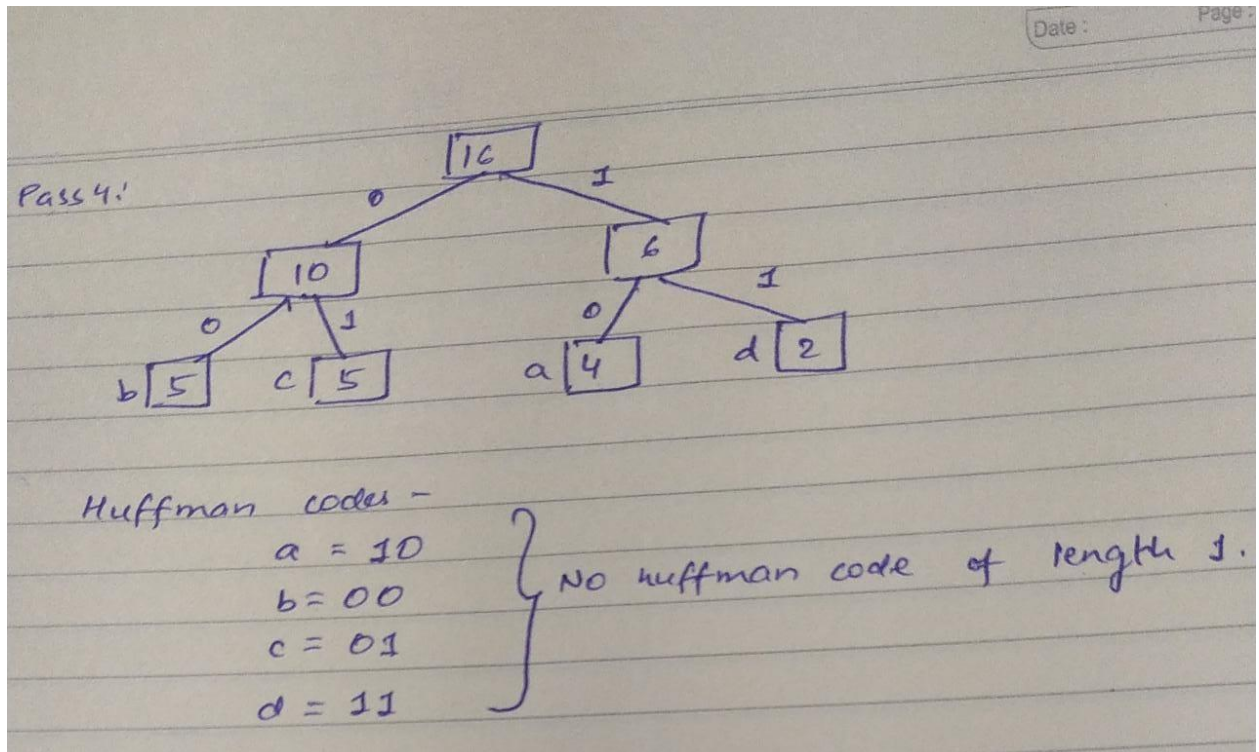 Date : Page :
16
Pass 4:
0 1
10 6
0 1 0 1
b 5 c 5 a 4 d 2
Huffman codes -
a = 10
b = 00
c = 01
d = 11
No huffman code of length 1.